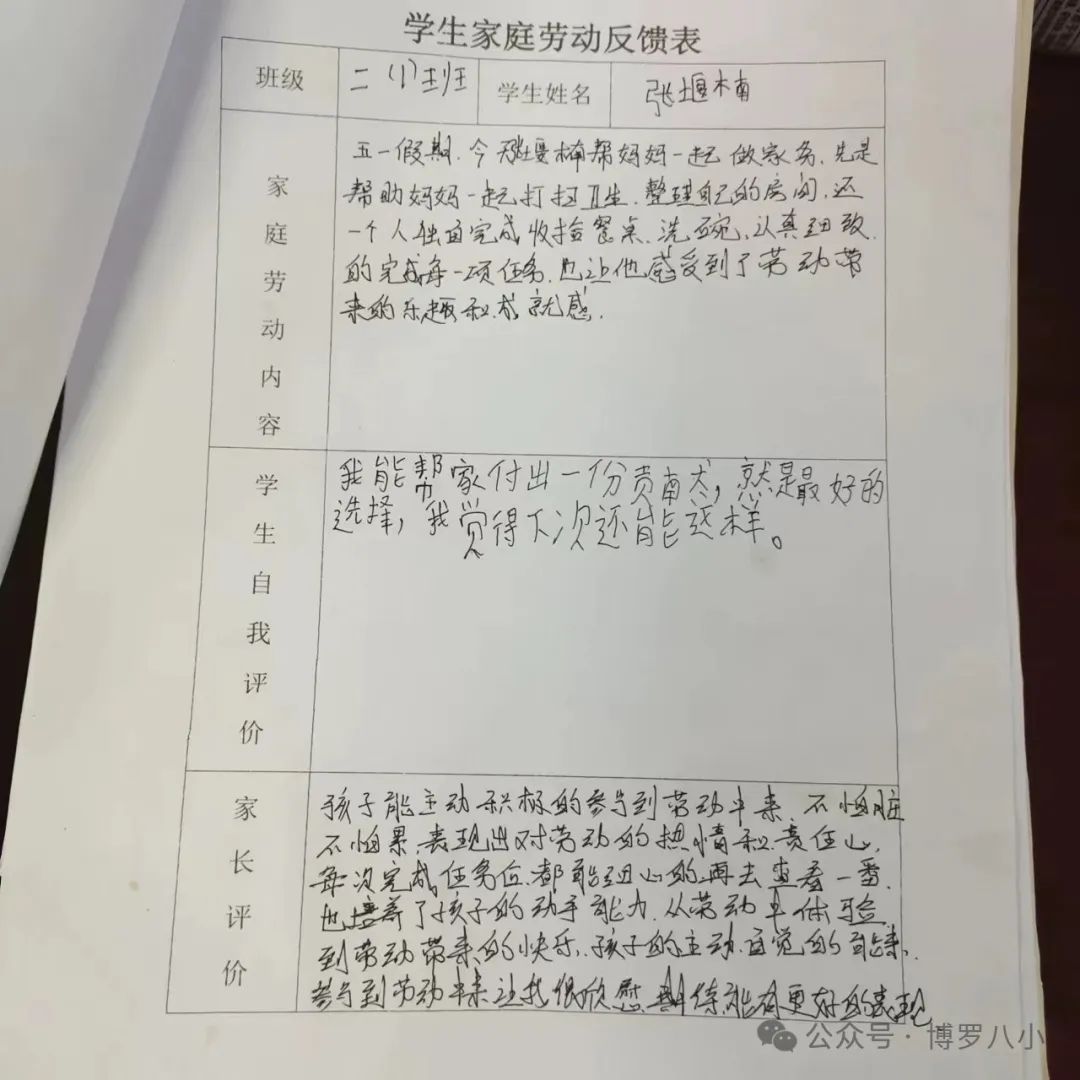 学生家庭劳动反馈表
班级 二(1)班 学生姓名 张堰楠
家庭劳动内容
五一假期.今天张堰楠帮妈妈一起做家务.先是
帮助妈妈一起打扫卫生.整理自己的房间.还
一个人独自完成收捡餐桌.洗碗.认真细致.
的完成每一项任务.也让他感受到了劳动带
来的乐趣和成就感.
学生自我评价
我能帮家付出一份贡献,就是最好的
选择,我觉得下次还能这样。
家长评价
孩子能主动积极的参与到劳动中来.不怕脏
不怕累.表现出对劳动的热情和责任心.
每次完成任务后.都能细心的再去查看一番.
也培养了孩子的动手能力.从劳动中体验
到劳动带来的快乐.孩子的主动.自觉的能来.
参与到劳动中来让我很欣慰.能有更好的表现
公众号·博罗八小